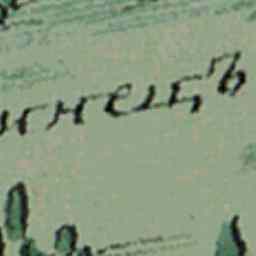 инецъ